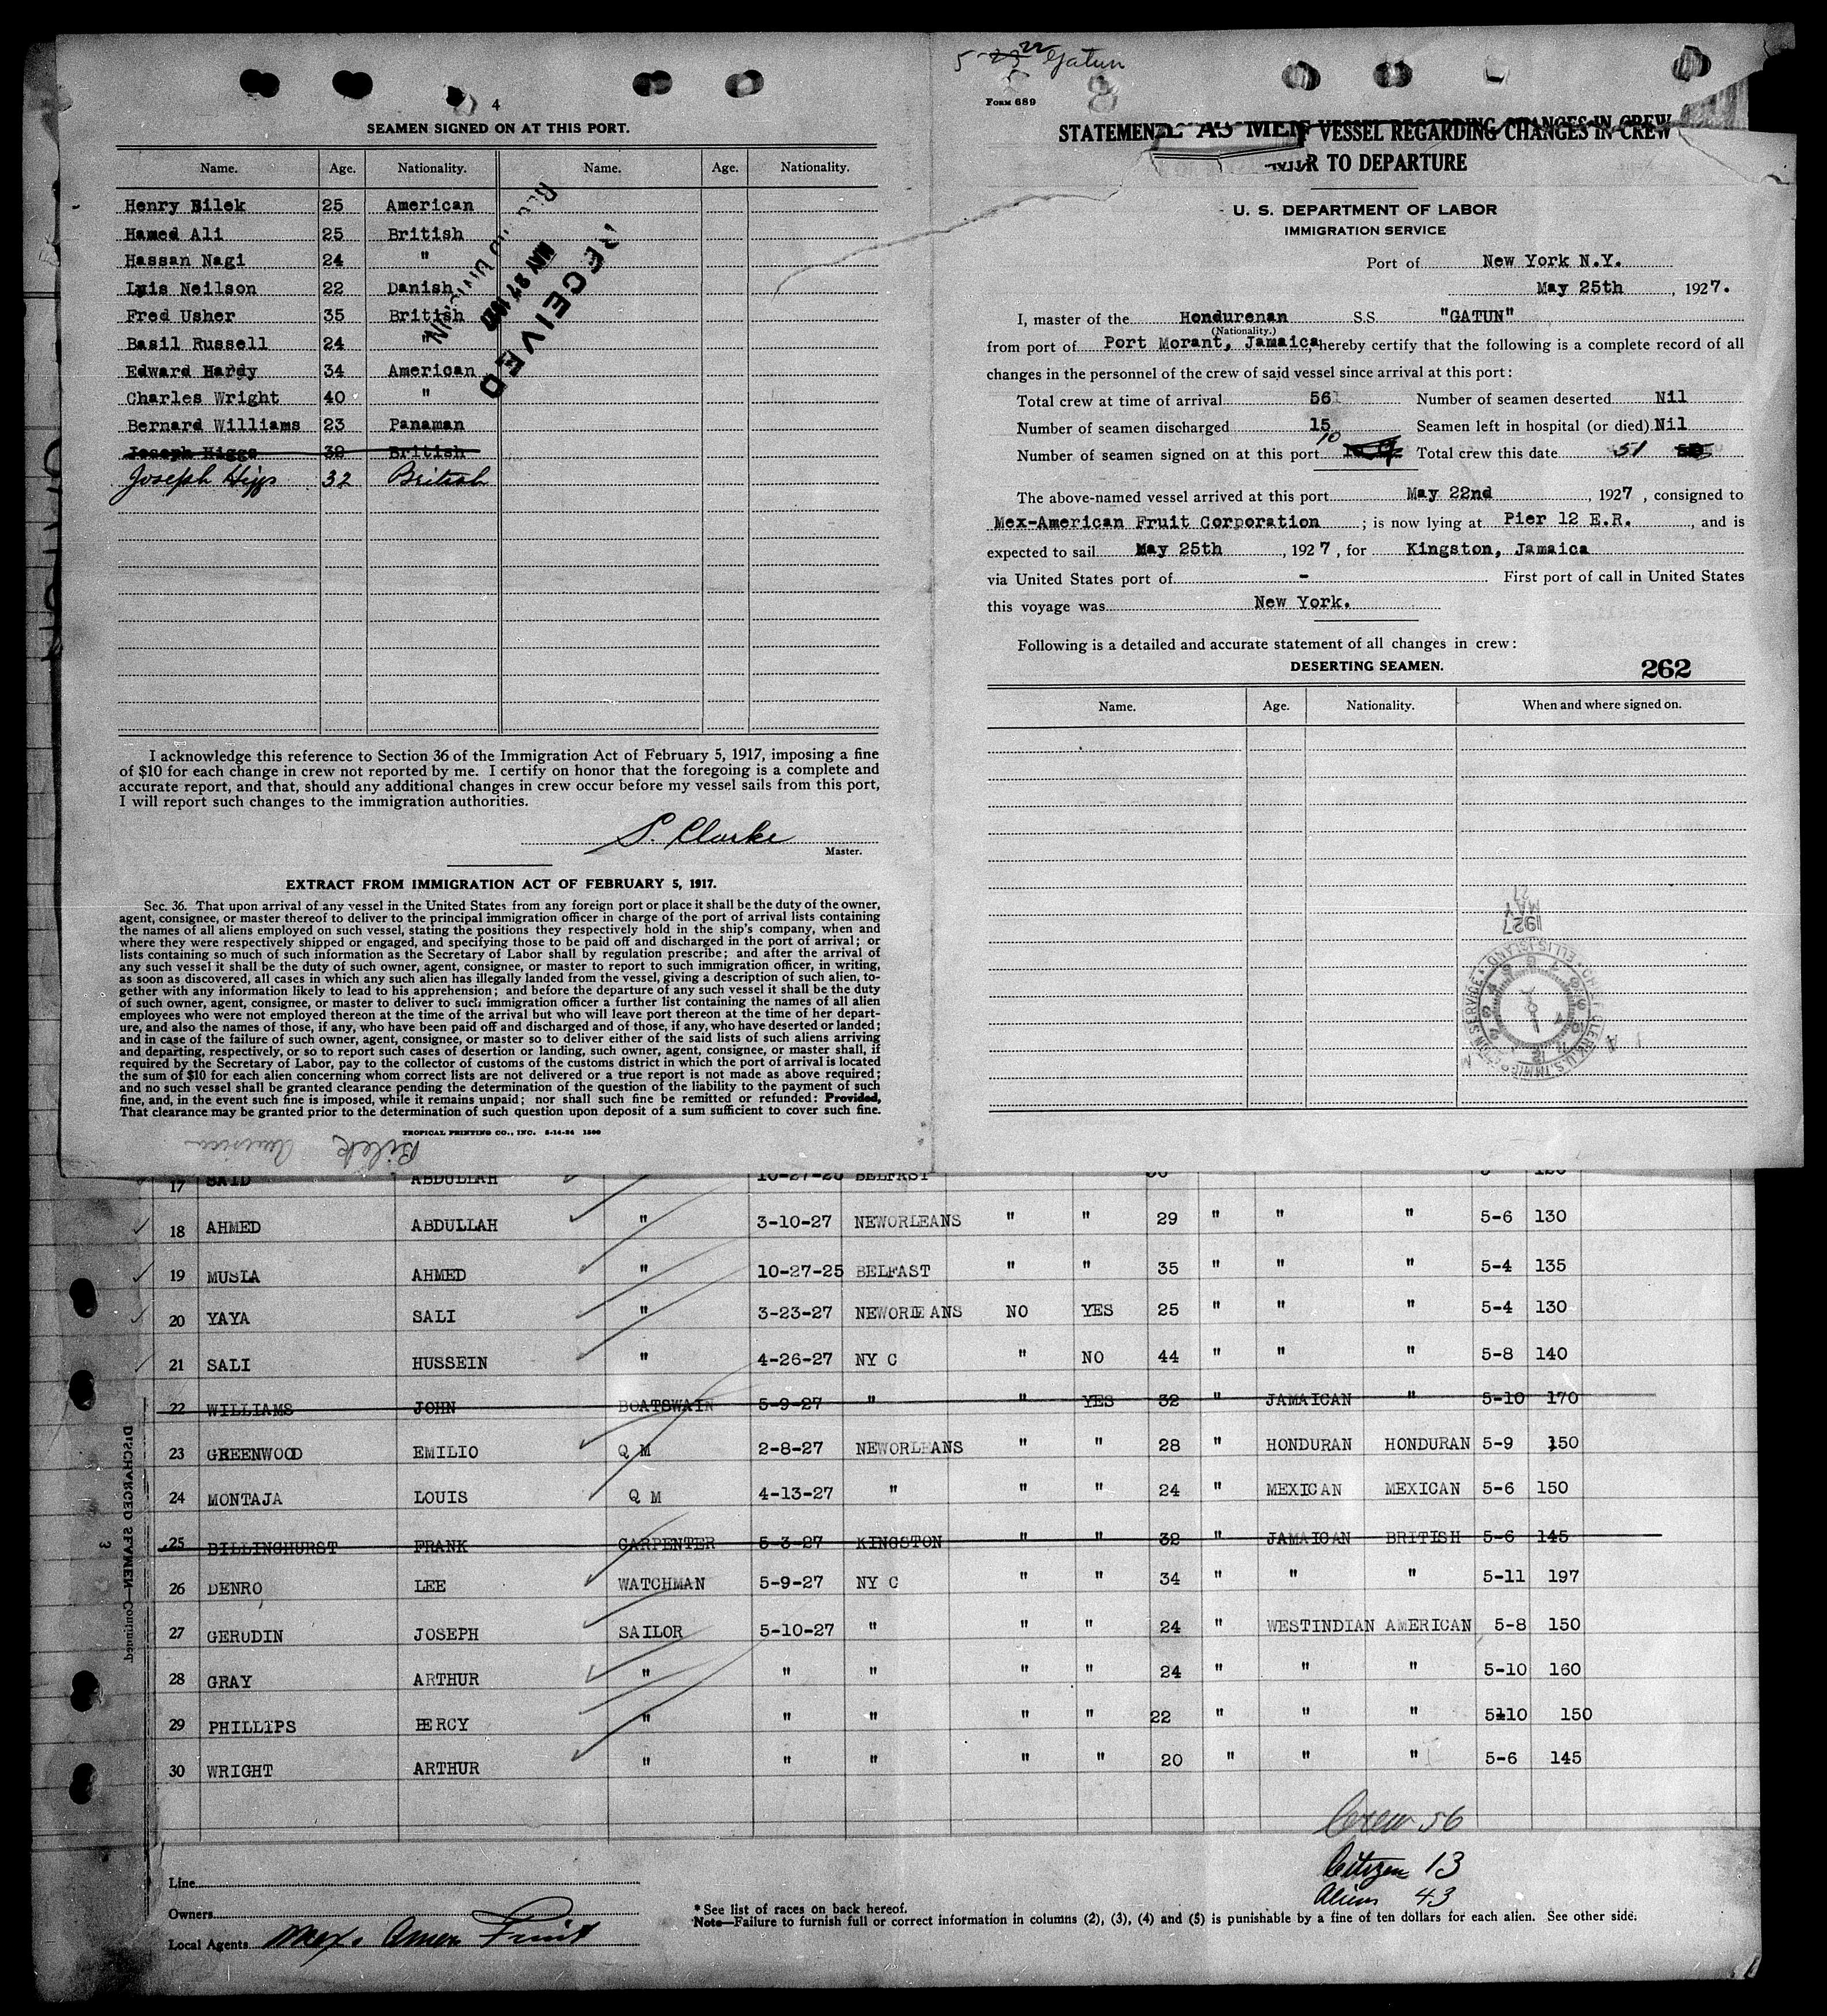 4
SEAMEN SIGNED ON AT THIS PORT.
Name. Age. Nationality. Name. Age. Nationality.
Henry Bilek 25 American
Hamed Ali 25 British
Hassan Nagi 24 "
Luis Neilson 22 Danish
Fred Usher 35 British
Basil Russell 24 "
Edward Hardy 34 American
Charles Wright 40 "
Bernard Williams 23 Panaman
Joseph Higgs 32 British
Joseph Higgs 32 British
RECEIVED
MAY 27 1927
DIVISION
I acknowledge this reference to Section 36 of the Immigration Act of February 5, 1917, imposing a fine
of $10 for each change in crew not reported by me. I certify on honor that the foregoing is a complete and
accurate report, and that, should any additional changes in crew occur before my vessel sails from this port,
I will report such changes to the immigration authorities.
S. Clarke
Master.
EXTRACT FROM IMMIGRATION ACT OF FEBRUARY 5, 1917.
Sec. 36. That upon arrival of any vessel in the United States from any foreign port or place it shall be the duty of the owner,
agent, consignee, or master thereof to deliver to the principal immigration officer in charge of the port of arrival lists containing
the names of all aliens employed on such vessel, stating the positions they respectively hold in the ship's company, when and
where they were respectively shipped or engaged, and specifying those to be paid off and discharged in the port of arrival; or
lists containing so much of such information as the Secretary of Labor shall by regulation prescribe; and after the arrival of
any such vessel it shall be the duty of such owner, agent, consignee, or master to report to such immigration officer, in writing,
as soon as discovered, all cases in which any such alien has illegally landed from the vessel, giving a description of such alien, to-
gether with any information likely to lead to his apprehension; and before the departure of any such vessel it shall be the duty
of such owner, agent, consignee, or master to deliver to such immigration officer a further list containing the names of all alien
employees who were not employed thereon at the time of the arrival but who will leave port thereon at the time of her depart-
ure, and also the names of those, if any, who have been paid off and discharged and of those, if any, who have deserted or landed;
and in case of the failure of such owner, agent, consignee, or master so to deliver either of the said lists of such aliens arriving
and departing, respectively, or so to report such cases of desertion or landing, such owner, agent, consignee, or master shall, if
required by the Secretary of Labor, pay to the collector of customs of the customs district in which the port of arrival is located
the sum of $10 for each alien concerning whom correct lists are not delivered or a true report is not made as above required;
and no such vessel shall be granted clearance pending the determination of the question of the liability to the payment of such
fine, and, in the event such fine is imposed, while it remains unpaid; nor shall such fine be remitted or refunded: Provided,
That clearance may be granted prior to the determination of such question upon deposit of a sum sufficient to cover such fine.
TROPICAL PRINTING CO., INC. 5-14-24 1500
Bilek American
5-22 Gatun
Form 689
8
STATEMENT VESSEL REGARDING CHANGES IN CREW
TO DEPARTURE
U. S. DEPARTMENT OF LABOR
IMMIGRATION SERVICE
Port of New York N.Y.
May 25th, 1927.
I, master of the Hondurenan S.S. "GATUN"
(Nationality.)
from port of Port Morant, Jamaica, hereby certify that the following is a complete record of all
changes in the personnel of the crew of said vessel since arrival at this port:
Total crew at time of arrival 56 Number of seamen deserted Nil
Number of seamen discharged 15 Seamen left in hospital (or died) Nil
Number of seamen signed on at this port 10 Total crew this date 51
The above-named vessel arrived at this port May 22nd, 1927, consigned to
Mex-American Fruit Corporation; is now lying at Pier 12 E.R., and is
expected to sail May 25th, 1927, for Kingston, Jamaica
via United States port of - First port of call in United States
this voyage was New York.
Following is a detailed and accurate statement of all changes in crew:
DESERTING SEAMEN. 262
Name. Age. Nationality. When and where signed on.
1927
MAY
27
CHIEF CLERK U.S. IMMIGRATION SERVICE ELLIS ISLAND
17 SAID ABDULLAH BELFAST
18 AHMED ABDULLAH " 3-10-27 NEWORLEANS " " 29 " " " 5-6 130
19 MUSLA AHMED " 10-27-25 BELFAST " " 35 " " " 5-4 135
20 YAYA SALI " 3-23-27 NEWORLEANS NO YES 25 " " " 5-4 130
21 SALI HUSSEIN " 4-26-27 NY C " NO 44 " " " 5-8 140
22 WILLIAMS JOHN BOATSWAIN 5-9-27 " " YES 32 " JAMAICAN " 5-10 170
23 GREENWOOD EMILIO Q M 2-8-27 NEWORLEANS " " 28 " HONDURAN HONDURAN 5-9 150
24 MONTAJA LOUIS Q M 4-13-27 " " " 24 " MEXICAN MEXICAN 5-6 150
25 BILLINGHURST FRANK CARPENTER 5-3-27 KINGSTON " " 32 " JAMAICAN BRITISH 5-6 145
26 DENRO LEE WATCHMAN 5-9-27 NY C " " 34 " " " 5-11 197
27 GERUDIN JOSEPH SAILOR 5-10-27 " " " 24 " WESTINDIAN AMERICAN 5-8 150
28 GRAY ARTHUR " " " " " 24 " " " 5-10 160
29 PHILLIPS PERCY " " " " " 22 " " " 5-10 150
30 WRIGHT ARTHUR " " " " " 20 " " " 5-6 145
DISCHARGED SEAMEN—Continued.
3
Crew 56
Citizen 13
Aliens 43
Line
Owners
Local Agents Mex. Amer Fruit
* See list of races on back hereof.
Note—Failure to furnish full or correct information in columns (2), (3), (4) and (5) is punishable by a fine of ten dollars for each alien. See other side.